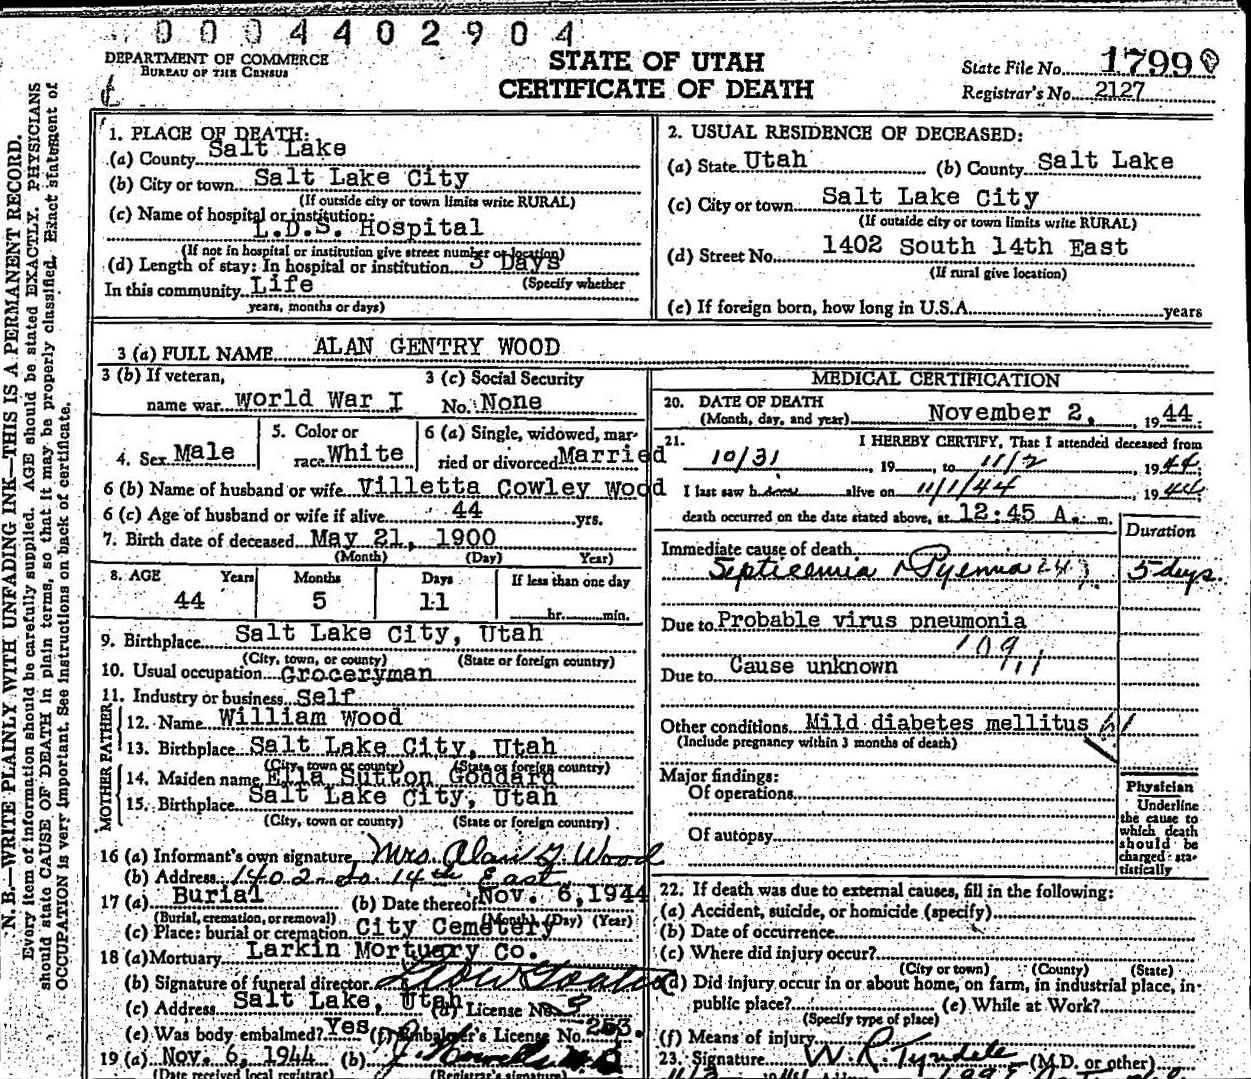 0004402904
DEPARTMENT OF COMMERCE
BUREAU OF THE CENSUS
STATE OF UTAH
CERTIFICATE OF DEATH
State File No. 1799
Registrar's No. 2127
N. B.—WRITE PLAINLY WITH UNFADING INK—THIS IS A PERMANENT RECORD.
Every item of information should be carefully supplied. AGE should be stated EXACTLY. PHYSICIANS
should state CAUSE OF DEATH in plain terms, so that it may be properly classified. Exact statement of
OCCUPATION is very important. See instructions on back of certificate.
1. PLACE OF DEATH:
(a) County Salt Lake
(b) City or town Salt Lake City
(If outside city or town limits write RURAL)
(c) Name of hospital or institution:
L.D.S. Hospital
(If not in hospital or institution give street number or location)
(d) Length of stay: In hospital or institution 3 Days
(Specify whether
In this community Life
years, months or days)
2. USUAL RESIDENCE OF DECEASED:
(a) State Utah (b) County Salt Lake
(c) City or town Salt Lake City
(If outside city or town limits write RURAL)
(d) Street No. 1402 South 14th East
(If rural give location)
(e) If foreign born, how long in U.S.A. years
3 (a) FULL NAME ALAN GENTRY WOOD
3 (b) If veteran,
name war World War I
3 (c) Social Security
No. None
4. Sex Male
5. Color or
race White
6 (a) Single, widowed, mar-
ried or divorced Married
6 (b) Name of husband or wife Villetta Cowley Wood
6 (c) Age of husband or wife if alive 44 yrs.
7. Birth date of deceased May 21, 1900
(Month) (Day) Year)
8. AGE Years Months Days If less than one day
44 5 11 hr. min.
9. Birthplace Salt Lake City, Utah
(City, town, or county) (State or foreign country)
10. Usual occupation Groceryman
11. Industry or business Self
FATHER
12. Name William Wood
13. Birthplace Salt Lake City, Utah
(City, town or county) (State or foreign country)
MOTHER
14. Maiden name Ella Sutton Goddard
15. Birthplace Salt Lake City, Utah
(City, town or county) (State or foreign country)
16 (a) Informant's own signature Mrs. Alan G. Wood
(b) Address 1402 So 14th East
17 (a) Burial (b) Date thereof Nov. 6, 1944
(Burial, cremation, or removal) (Month) (Day) (Year)
(c) Place: burial or cremation City Cemetery
18 (a) Mortuary Larkin Mortuary Co.
(b) Signature of funeral director
(c) Address Salt Lake, Utah (d) License No.
(e) Was body embalmed? Yes (f) Embalmer's License No. 253.
19 (a) Nov. 6, 1944 (b)
(Date received local registrar) (Registrar's signature)
MEDICAL CERTIFICATION
20. DATE OF DEATH
(Month, day, and year) November 2, 1944
21. I HEREBY CERTIFY, That I attended deceased from
10/31, 19 , to 11/2, 1944
I last saw h alive on 11/1/44, 1944
death occurred on the date stated above, at 12:45 A. m.
Duration
Immediate cause of death
Septicemia Pyemia 5 days.
Due to Probable virus pneumonia
109
Due to Cause unknown
Other conditions Mild diabetes mellitus 61
(Include pregnancy within 3 months of death)
Major findings:
Of operations
Of autopsy
Physician
Underline
the cause to
which death
should be
charged sta-
tistically
22. If death was due to external causes, fill in the following:
(a) Accident, suicide, or homicide (specify)
(b) Date of occurrence
(c) Where did injury occur?
(City or town) (County) (State)
(d) Did injury occur in or about home, on farm, in industrial place, in
public place? (e) While at Work?
(Specify type of place)
(f) Means of injury
23. Signature W. R. Tyndale (M.D. or other)